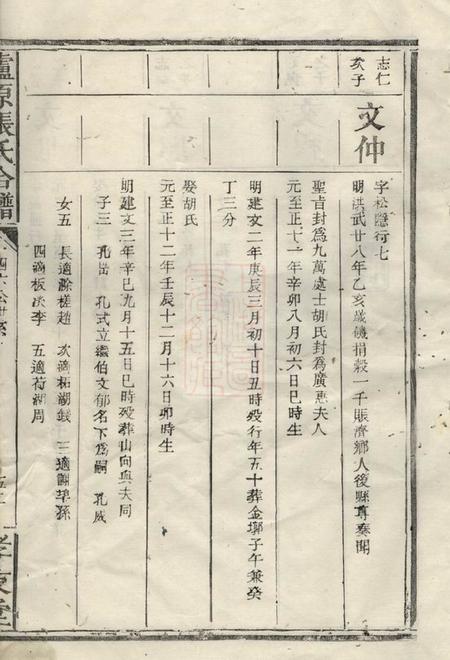 志仁
次子
文仲
字松隱行七
明洪武廿八年乙亥歲磯捐穀一千賬濟鄉人後縣尊奏聞
聖旨封爲九萬處士胡氏封爲廣惠夫人
元至正十一年辛卯八月初六日巳時生
明建文二年庚辰三月初十日丑時殁行年五十葬金塸子午兼癸
丁三分
娶胡氏
元至正十二年壬辰十二月十六日卯時生
明建文三年辛巳九月十五日巳時殁葬山向與夫同
子三 孔岳 孔式立繼伯文郁名下爲嗣 孔威
女五 長適滁槎趙 次適柘湖錢 三適孫
四適板次李 五適荷湖周
志
文
源張氏合譜